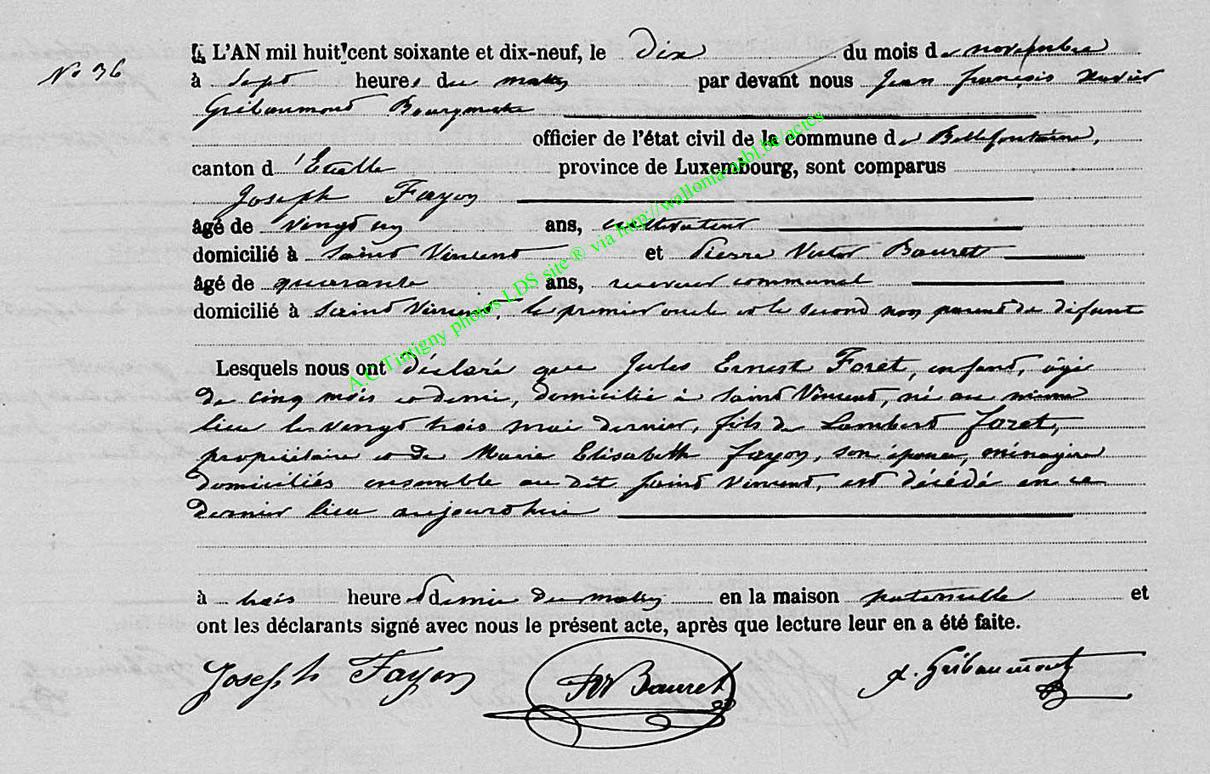 N° 36
L'AN mil huit cent soixante et dix-neuf, le Dix du mois de novembre
à sept heures du matin par devant nous Jean françois Xavier
Gribaumont Bourgmestre
officier de l'état civil de la commune de Bellefontaine,
canton d'Etalle province de Luxembourg, sont comparus
Joseph Fayon
âgé de vingt ans, cultivateur
domicilié à Saint Vincent et Pierre Victor Bauret
âgé de quarante ans, receveur communal
domicilié à Saint Vincent, le premier oncle et le second non parent de défunt
Lesquels nous ont déclaré que Jules Ernest Foret, enfant, âgé
de cinq mois et demi, domicilié à Saint Vincent, né au même
lieu le vingt trois mai dernier, fils de Lambert foret,
propriétaire et de Marie Elisabeth fayon, son épouse, ménagère
domiciliés ensemble au dit Saint Vincent, est décédé en ce
dernier lieu aujourd'hui
à trois heure et demie du matin en la maison paternelle et
ont les déclarants signé avec nous le présent acte, après que lecture leur en a été faite.
Joseph Fayon PV Bauret x. Gribaumont
A.C. Tintigny photos LDS site ® via http://walloma-asbl.be/actes